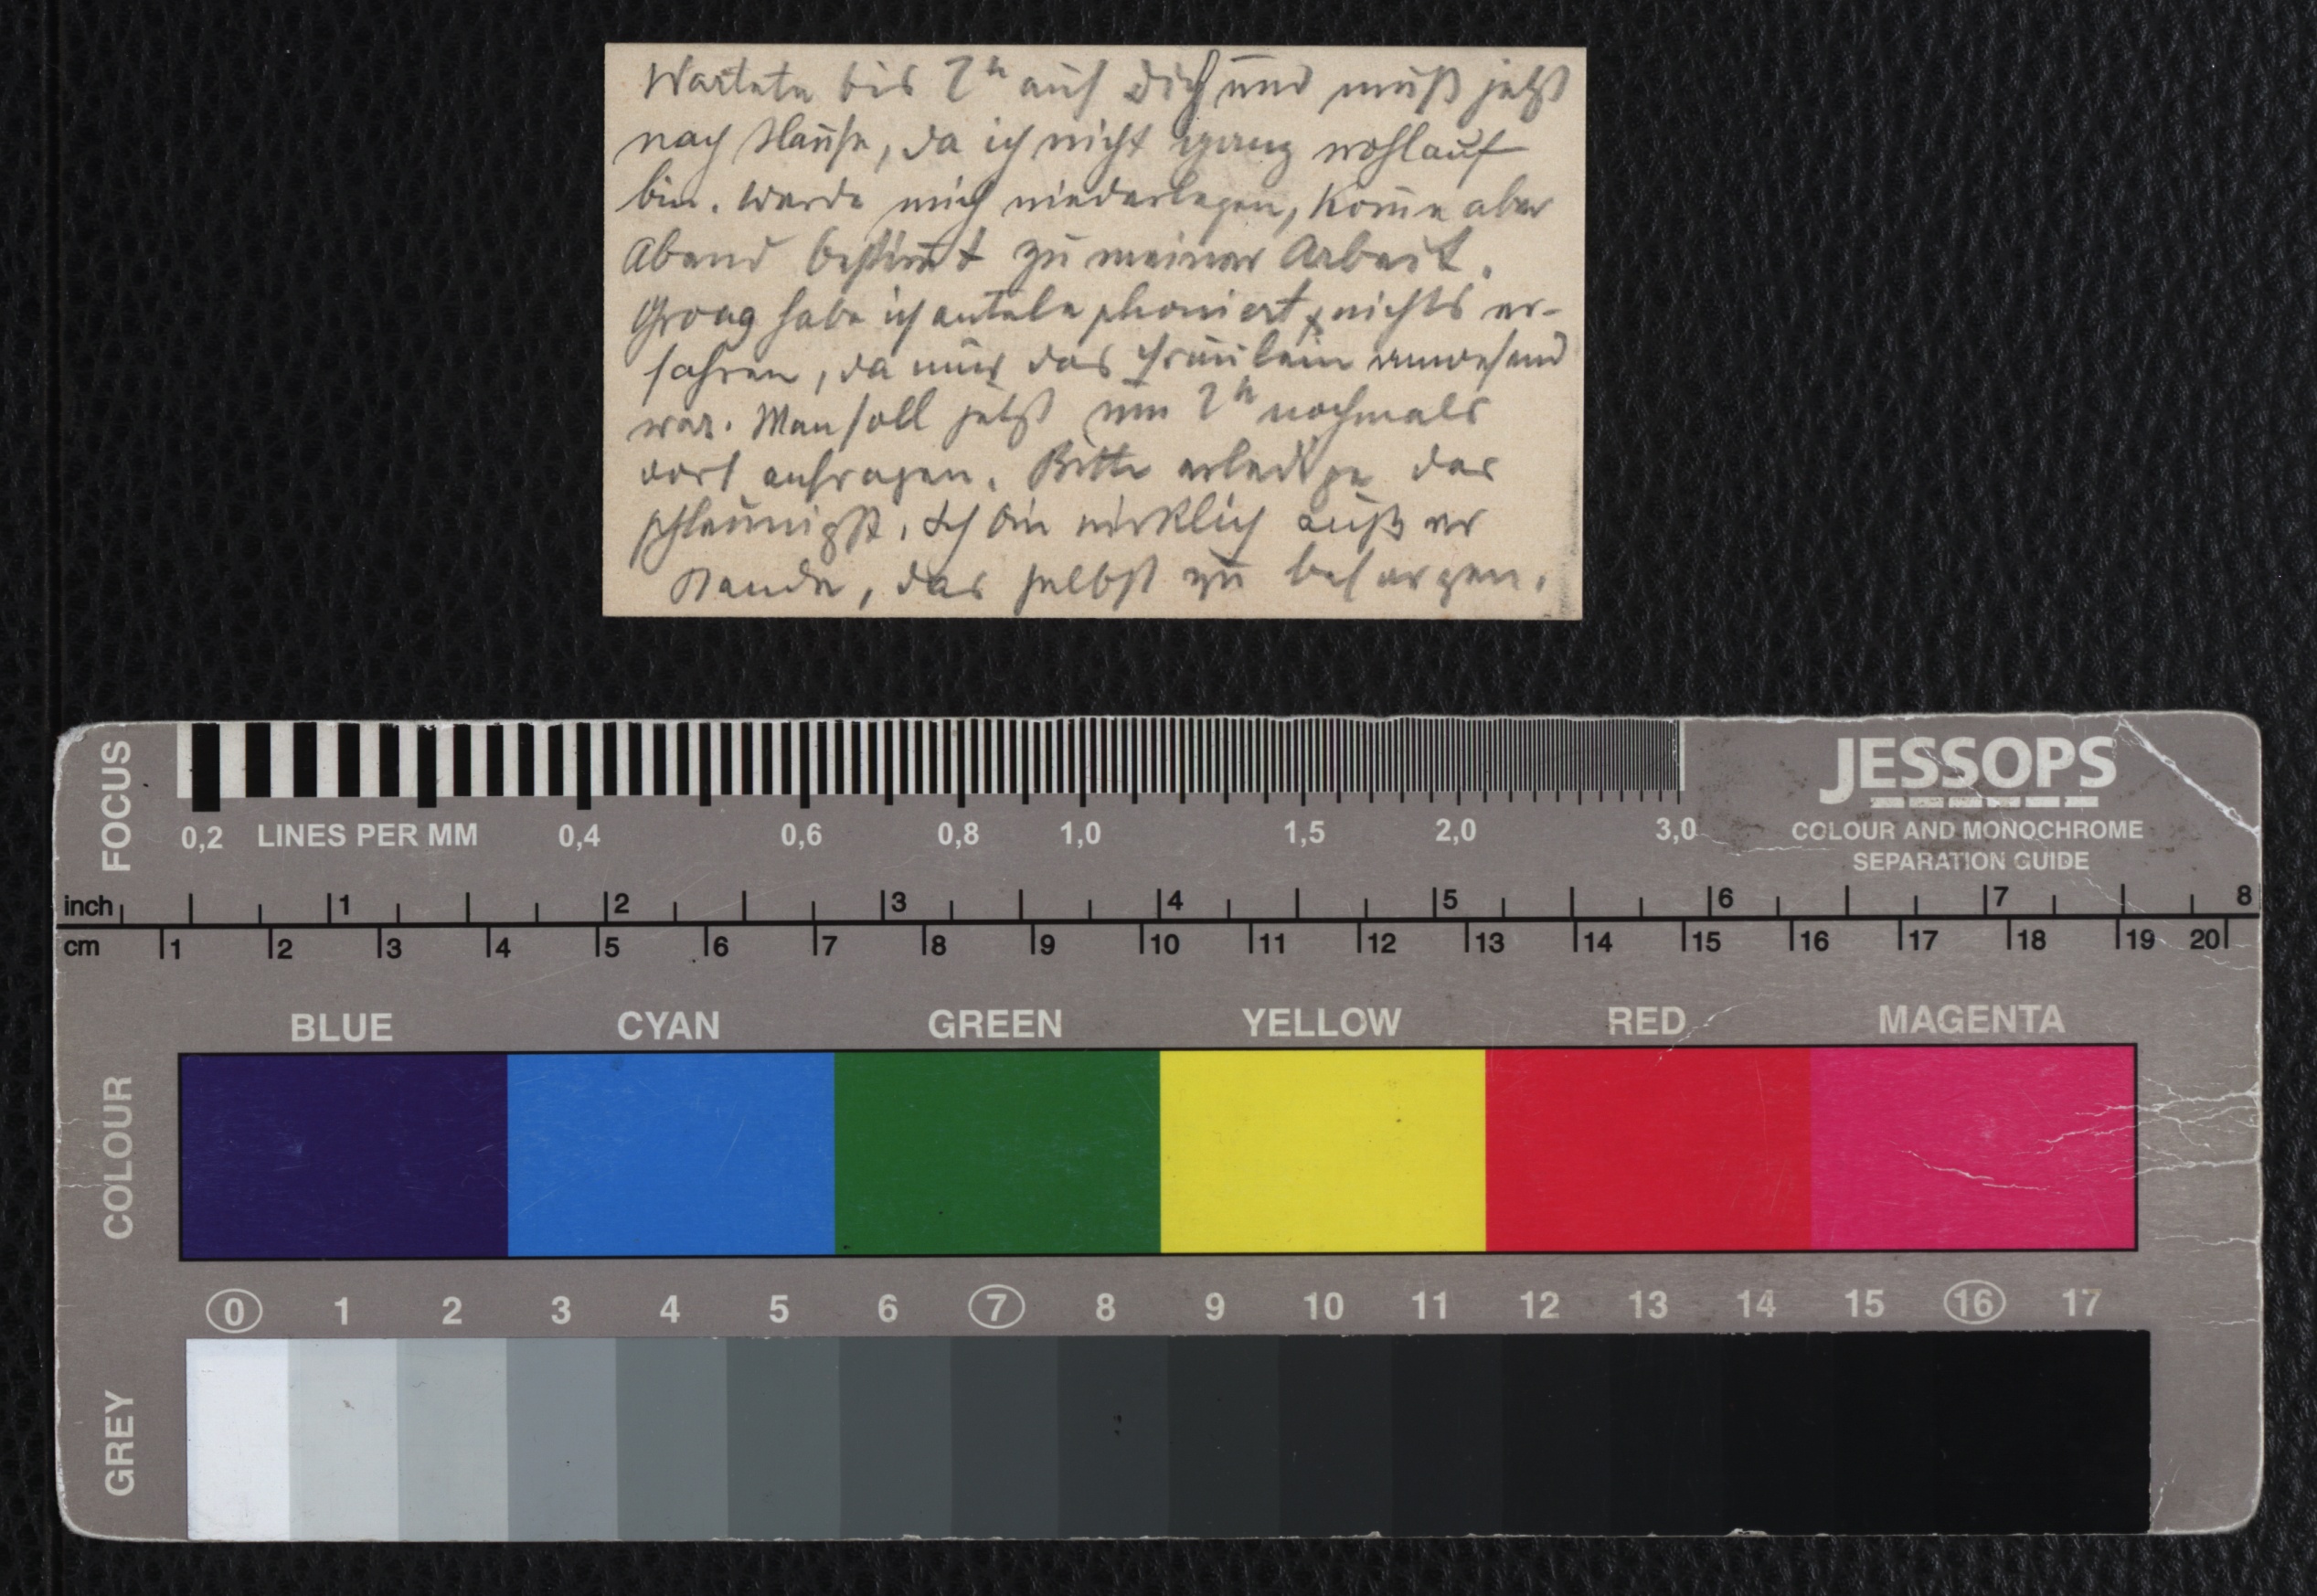 Wartete bis 2h auf Dich und muß jetzt
nach Hause, da ich nicht ganz wohlauf
bin. Werde mich niederlegen, kom̄e aber
Abend bestim̄t zu meiner Arbeit.
Groag habe ich antelephoniert, nichts er-
fahren, da nur das Fräulein anwesend
war. Man soll jetzt um 2h nochmals
dort anfragen. Bitte erledige das
schleunigst. Ich bin wirklich außer
Stande, das selbst zu besorgen.
FOCUS
0,2 LINES PER MM 0,4 0,6 0,8 1,0 1,5 2,0 3,0
JESSOPS
COLOUR AND MONOCHROME
SEPARATION GUIDE
inch 1 2 3 4 5 6 7 8
cm 1 2 3 4 5 6 7 8 9 10 11 12 13 14 15 16 17 18 19 20
COLOUR
BLUE CYAN GREEN YELLOW RED MAGENTA
0 1 2 3 4 5 6 7 8 9 10 11 12 13 14 15 16 17
GREY